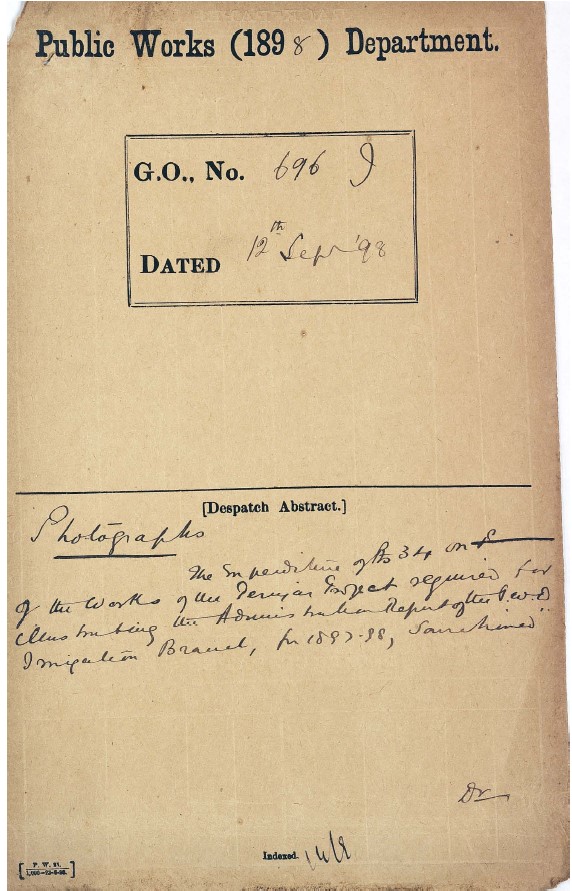 Public Works (1898) Department.
G.O., No. 696 I
DATED 12th Sepr '98
[Despatch Abstract.]
Photographs
The Expenditure of Rs 34 on
of the works of the Periyar Project required for
illustrating the Administration Report of the P.W.D
Irrigation Branch, for 1897-98, Sanctioned
Indexed.
P. W. 21.